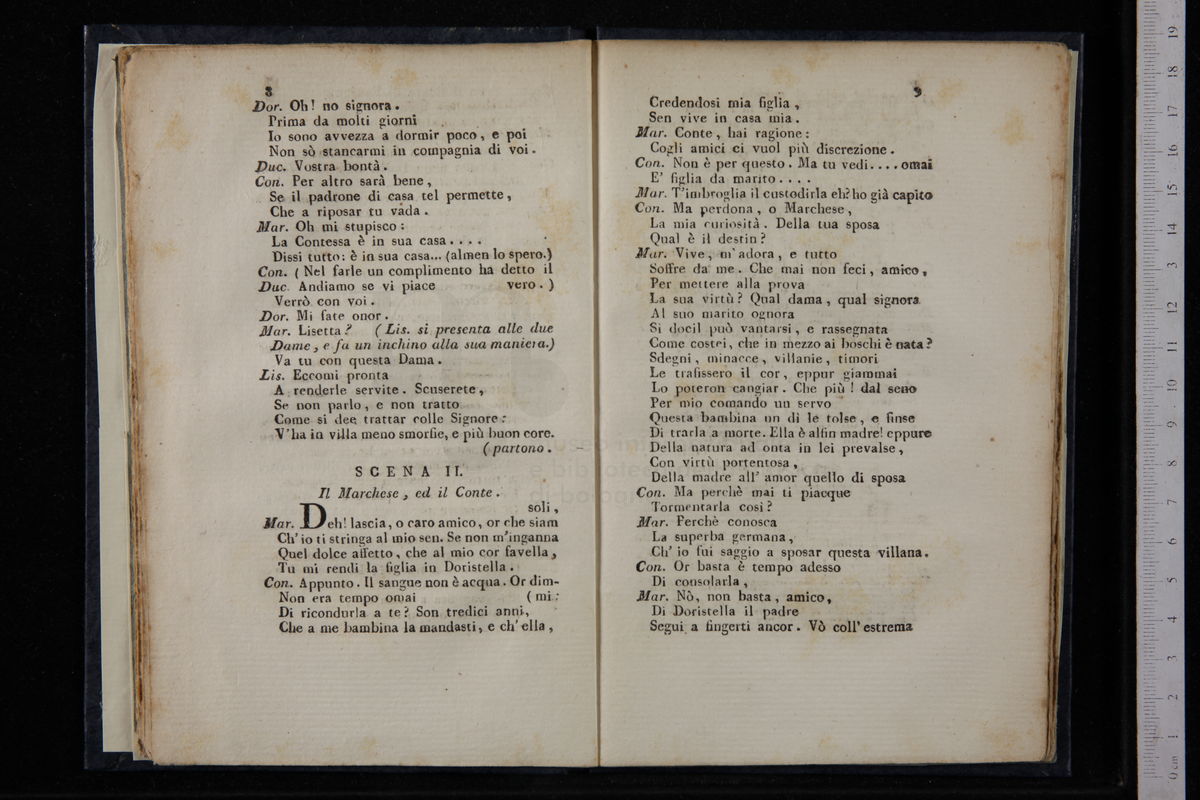 8
Dor. Oh! no signora.
Prima da molti giorni
Io sono avvezza a dormir poco, e poi
Non sò stancarmi in compagnia di voi.
Duc. Vostra bontà.
Con. Per altro sarà bene,
Se il padrone di casa tel permette,
Che a riposar tu vada.
Mar. Oh mi stupisco:
La Contessa è in sua casa....
Dissi tutto: è in sua casa... (almen lo spero.)
Con. (Nel farle un complimento ha detto il
Duc. Andiamo se vi piace vero.)
Verrò con voi.
Dor. Mi fate onor.
Mar. Lisetta? (Lis. si presenta alle due
Dame, e fa un inchino alla sua maniera.)
Va tu con questa Dama.
Lis. Eccomi pronta
A renderle servite. Scuserete,
Se non parlo, e non tratto
Come si dee trattar colle Signore:
V'ha in villa meno smorfie, e più buon core.
(partono.
SCENA II.
Il Marchese, ed il Conte.
soli,
Mar. Deh! lascia, o caro amico, or che siam
Ch' io ti stringa al mio sen. Se non m'inganna
Quel dolce affetto, che al mio cor favella,
Tu mi rendi la figlia in Doristella.
Con. Appunto. Il sangue non è acqua. Or dim-
Non era tempo omai (mi:
Di ricondurla a te? Son tredici anni,
Che a me bambina la mandasti, e ch' ella,
9
Credendosi mia figlia,
Sen vive in casa mia.
Mar. Conte, hai ragione:
Cogli amici ci vuol più discrezione.
Con. Non è per questo. Ma tu vedi.... omai
E' figlia da marito....
Mar. T'imbroglia il custodirla eh? ho già capito
Con. Ma perdona, o Marchese,
La mia curiosità. Della tua sposa
Qual è il destin?
Mar. Vive, m'adora, e tutto
Soffre da me. Che mai non feci, amico,
Per mettere alla prova
La sua virtù? Qual dama, qual signora
Al suo marito ognora
Si docil può vantarsi, e rassegnata
Come costei, che in mezzo ai boschi è nata?
Sdegni, minacce, villanie, timori
Le trafissero il cor, eppur giammai
Lo poteron cangiar. Che più! dal seno
Per mio comando un servo
Questa bambina un dì le tolse, e finse
Di trarla a morte. Ella è alfin madre! eppure
Della natura ad onta in lei prevalse,
Con virtù portentosa,
Della madre all' amor quello di sposa
Con. Ma perchè mai ti piacque
Tormentarla così?
Mar. Perchè conosca
La superba germana,
Ch' io fui saggio a sposar questa villana.
Con. Or basta è tempo adesso
Di consolarla,
Mar. Nò, non basta, amico,
Di Doristella il padre
Segui a fingerti ancor. Vò coll' estrema